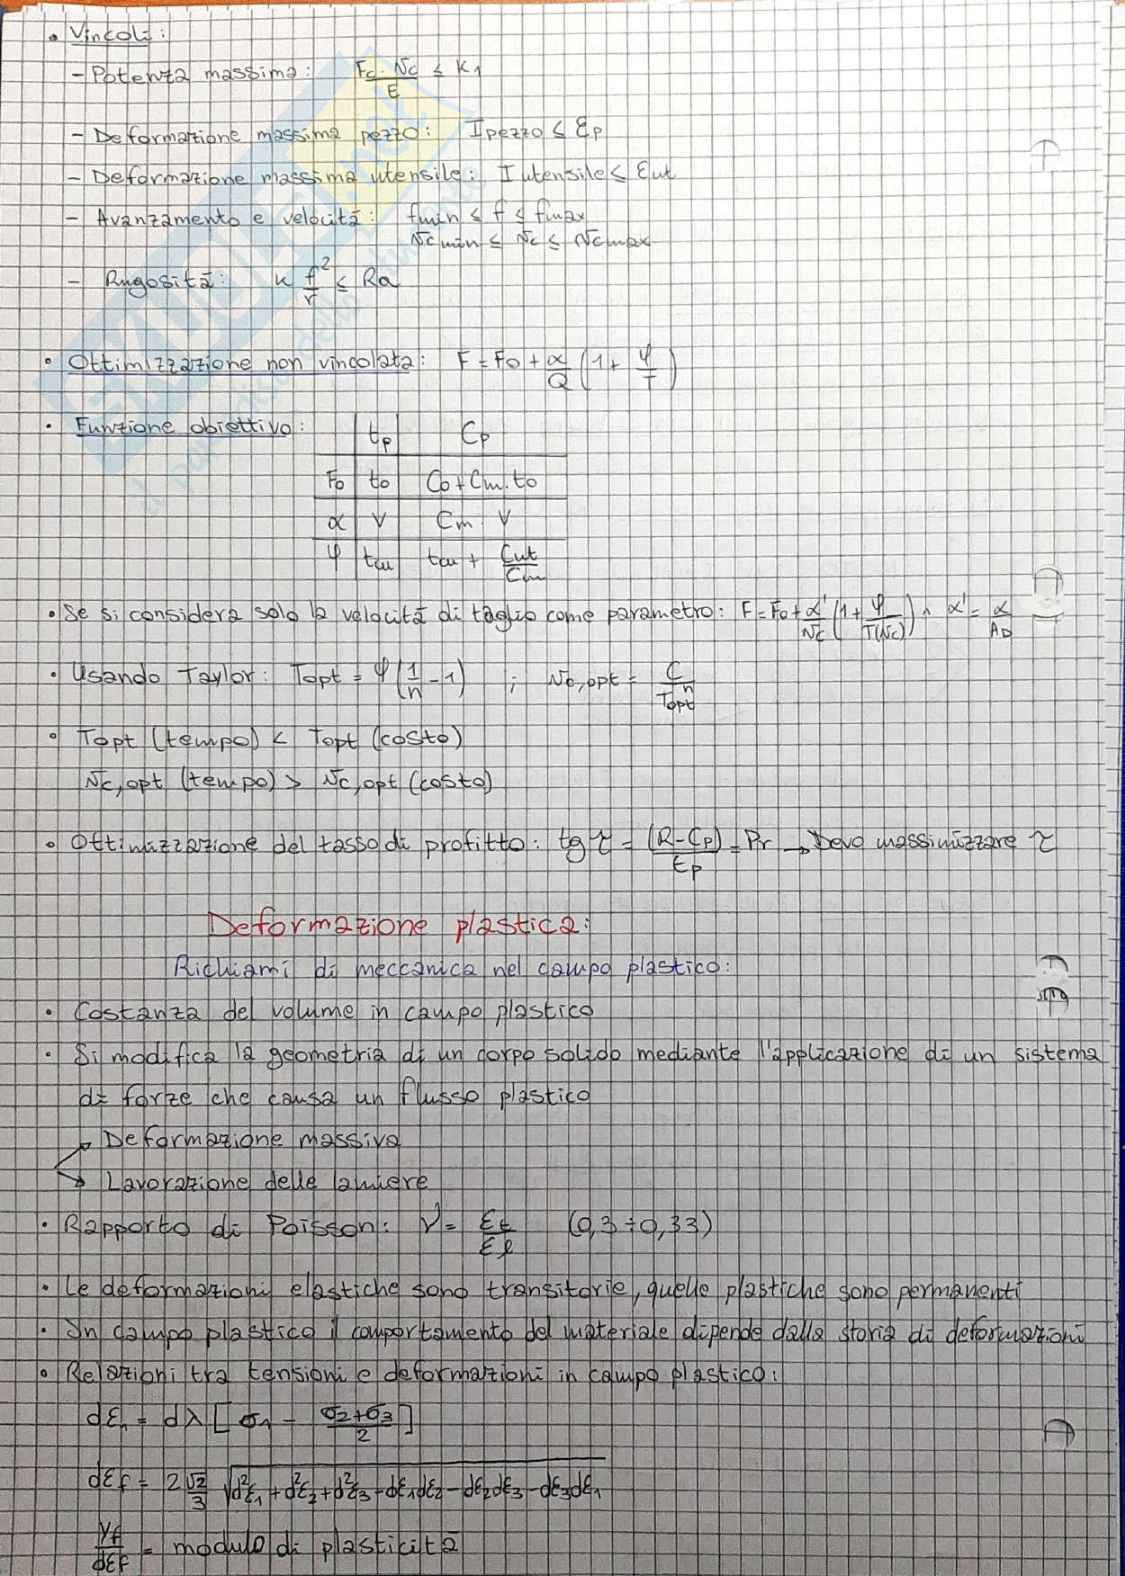 • Vincoli:
- Potenza massima: Fc · vc / E ≤ K1
- Deformazione massima pezzo: Ipezzo ≤ Ep
- Deformazione massima utensile: Iutensile ≤ Eut
- Avanzamento e velocità: fmin ≤ f ≤ fmax
vc min ≤ vc ≤ vc max
- Rugosità: K f²/r ≤ Ra
• Ottimizzazione non vincolata: F = F0 + α/Q (1 + φ/T)
• Funzione obiettivo: tp Cp
F0 t0 C0 + Cm · t0
α V Cm · V
φ tcu tcu + Cut/Cm
• Se si considera solo la velocità di taglio come parametro: F = F0 + α'/vc (1 + φ/T(vc)) ^ α' = α/AD
• Usando Taylor: Topt = φ (1/n - 1) ; vc,opt = C/Topt^n
• Topt (tempo) < Topt (costo)
vc,opt (tempo) > vc,opt (costo)
• Ottimizzazione del tasso di profitto: tg τ = (R-Cp)/tp = Pr → Devo massimizzare τ
Deformazione plastica:
Richiami di meccanica nel campo plastico:
• Costanza del volume in campo plastico
• Si modifica la geometria di un corpo solido mediante l'applicazione di un sistema
di forze che causa un flusso plastico
→ Deformazione massiva
→ Lavorazione delle lamiere
• Rapporto di Poisson: ν = εt/εl (0,3 ÷ 0,33)
• Le deformazioni elastiche sono transitorie, quelle plastiche sono permanenti
• In campo plastico il comportamento del materiale dipende dalla storia di deformazioni
• Relazioni tra tensioni e deformazioni in campo plastico:
dε1 = dλ [σ1 - (σ2+σ3)/2]
dεf = 2 √2/3 √(d²ε1 + d²ε2 + d²ε3 - dε1dε2 - dε2dε3 - dε3dε1)
Yf/dεf = modulo di plasticità